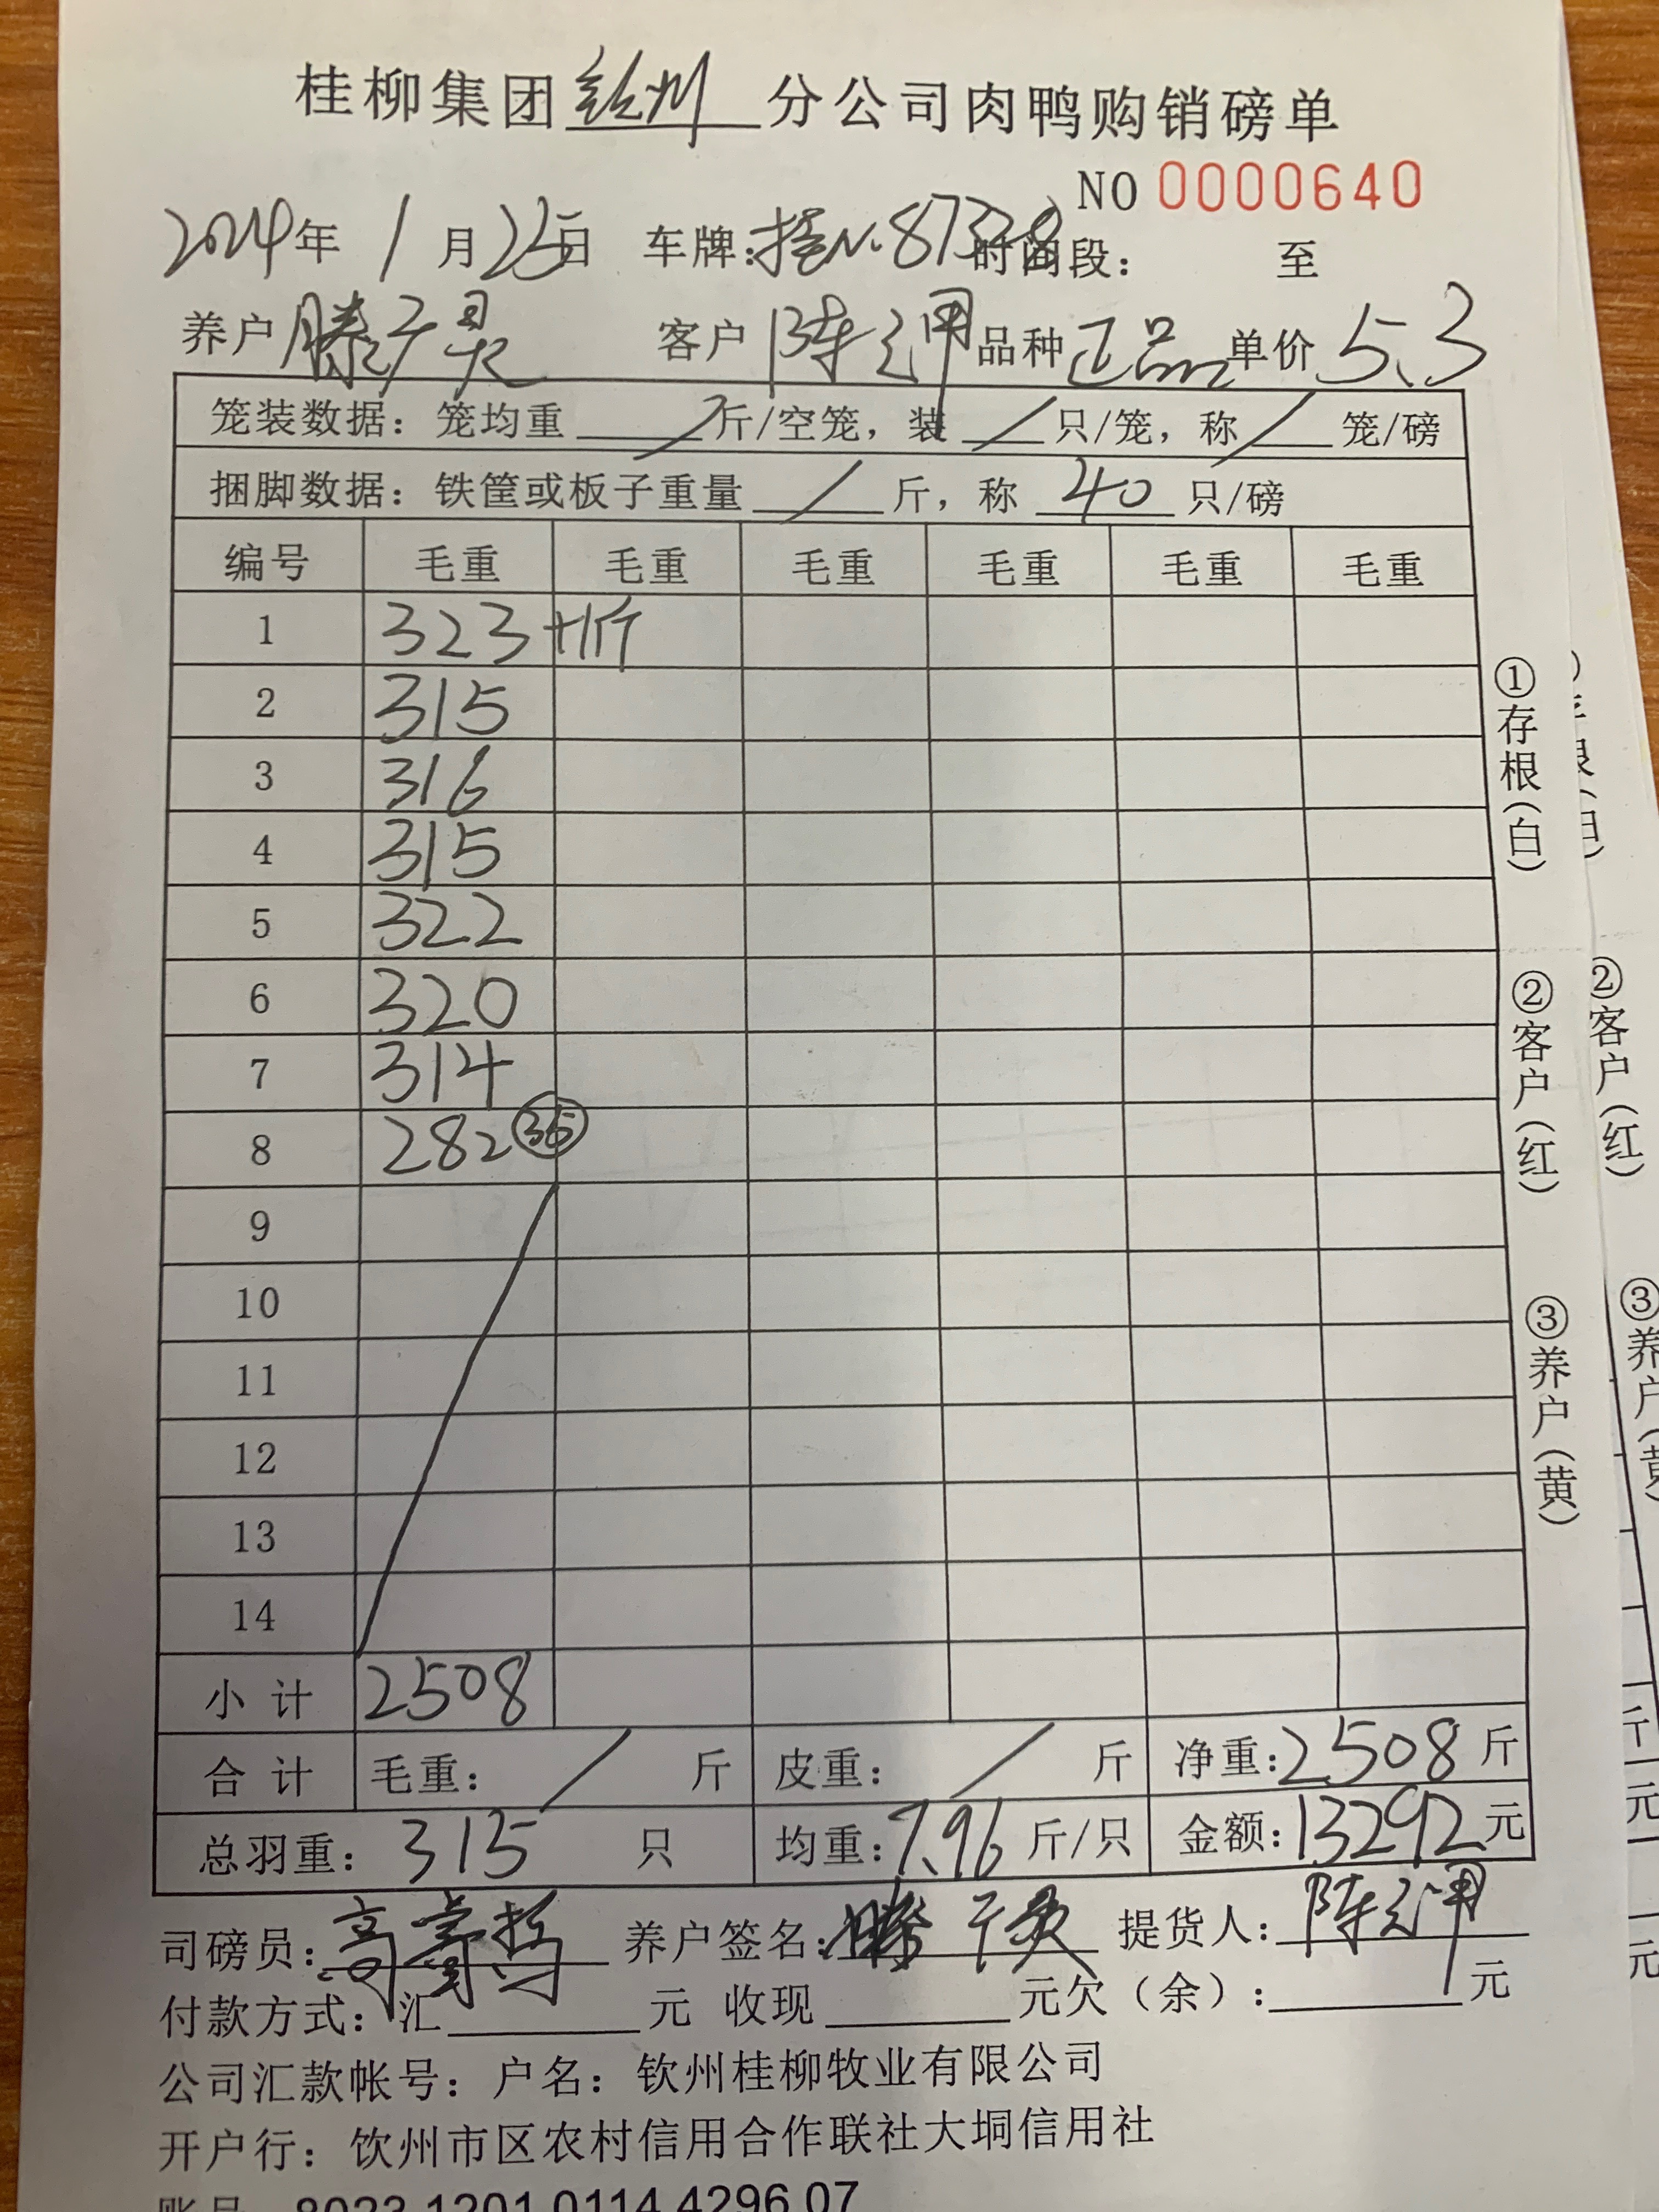 桂柳集团钦州分公司肉鸭购销磅单
NO 0000640
2024年 1月25日 车牌: N.87338 时间段: 至
养户 滕广 客户 陈 品种 正品 单价 5.3
笼装数据: 笼均重 / 斤/空笼, 装 / 只/笼, 称 / 笼/磅
捆脚数据: 铁筐或板子重量 / 斤, 称 40 只/磅
编号 毛重 毛重 毛重 毛重 毛重 毛重
1 323 +1斤
2 315
3 316
4 315
5 322
6 320
7 314
8 282 35
9
10
11
12
13
14
小计 2508
合计 毛重: / 斤 皮重: / 斤 净重: 2508 斤
总羽重: 315 只 均重: 7.96 斤/只 金额: 13292 元
司磅员: 高 养户签名: 滕 提货人: 陈
付款方式: 汇 元 收现 元欠(余): 元
公司汇款帐号: 户名: 钦州桂柳牧业有限公司
开户行: 钦州市区农村信用合作联社大垌信用社
账号 8023 1201 0114 4296 07
①存根(白)
②客户(红)
③养户(黄)
②客户(红)
③养户(黄)